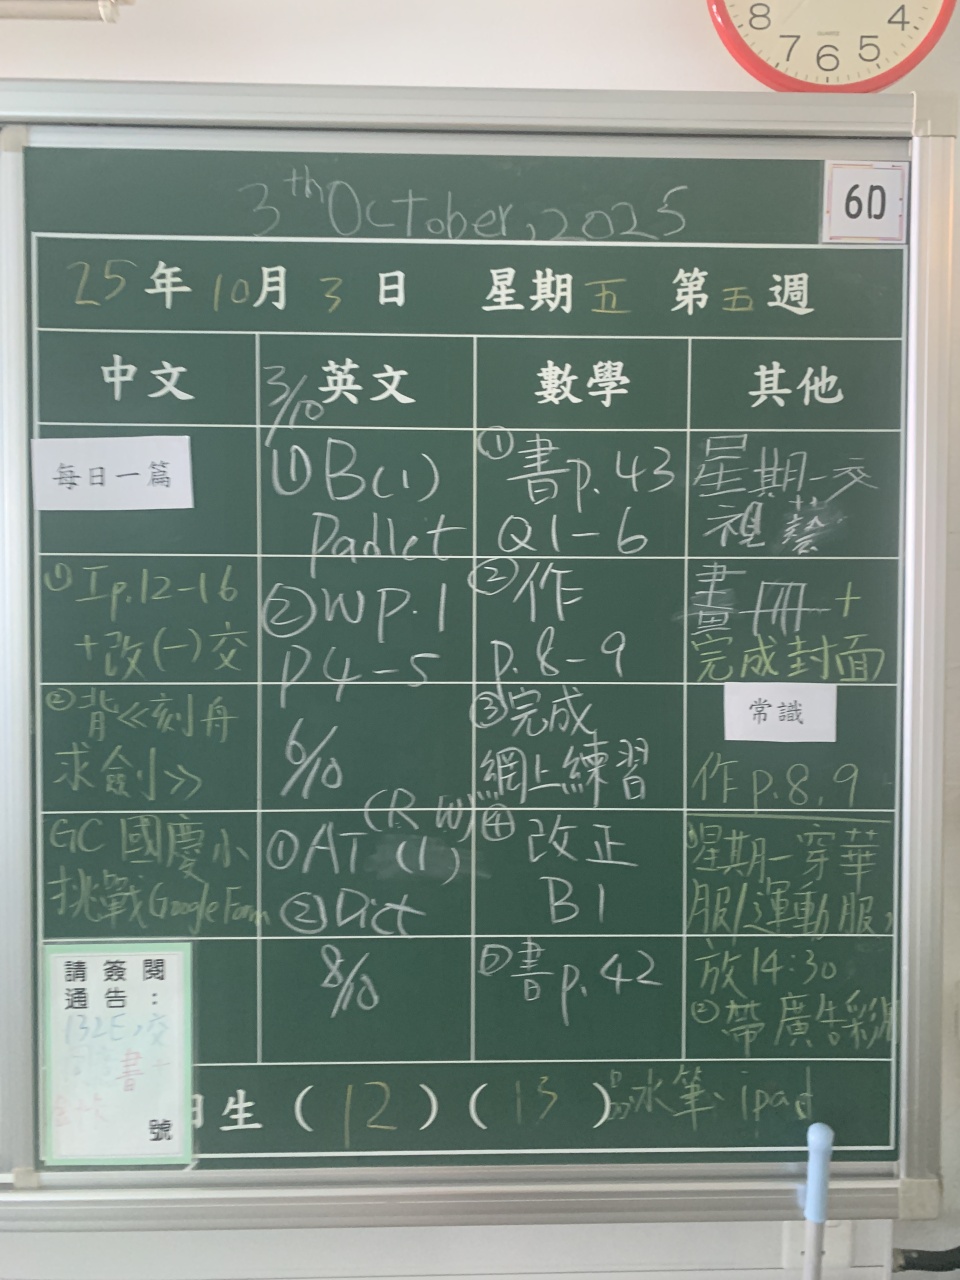 8 7 6 5 4
3th October, 2025
6D
25年10月3日 星期五 第五週
中文
每日一篇
①工p.12-16
+改(一)交
②背《刻舟
求劍》
GC 國慶小
挑戰Google Form
請簽閱
通告:
132E,交
書
號
3/10
英文
①B(1)
Padlet
②WP.1
P4-5
6/10
(R, W)
①AT (1)
②Dict
8/10
數學
①書p.43
Q1-6
②作
p.8-9
③完成
網上練習
④改正
B1
⑤書p.42
其他
星期一交
視藝
畫冊+
完成封面
常識
作p.8,9
①星期一穿華
服/運動服,
放14:30
②帶廣告彩
水筆、ipad
生(12)(13)